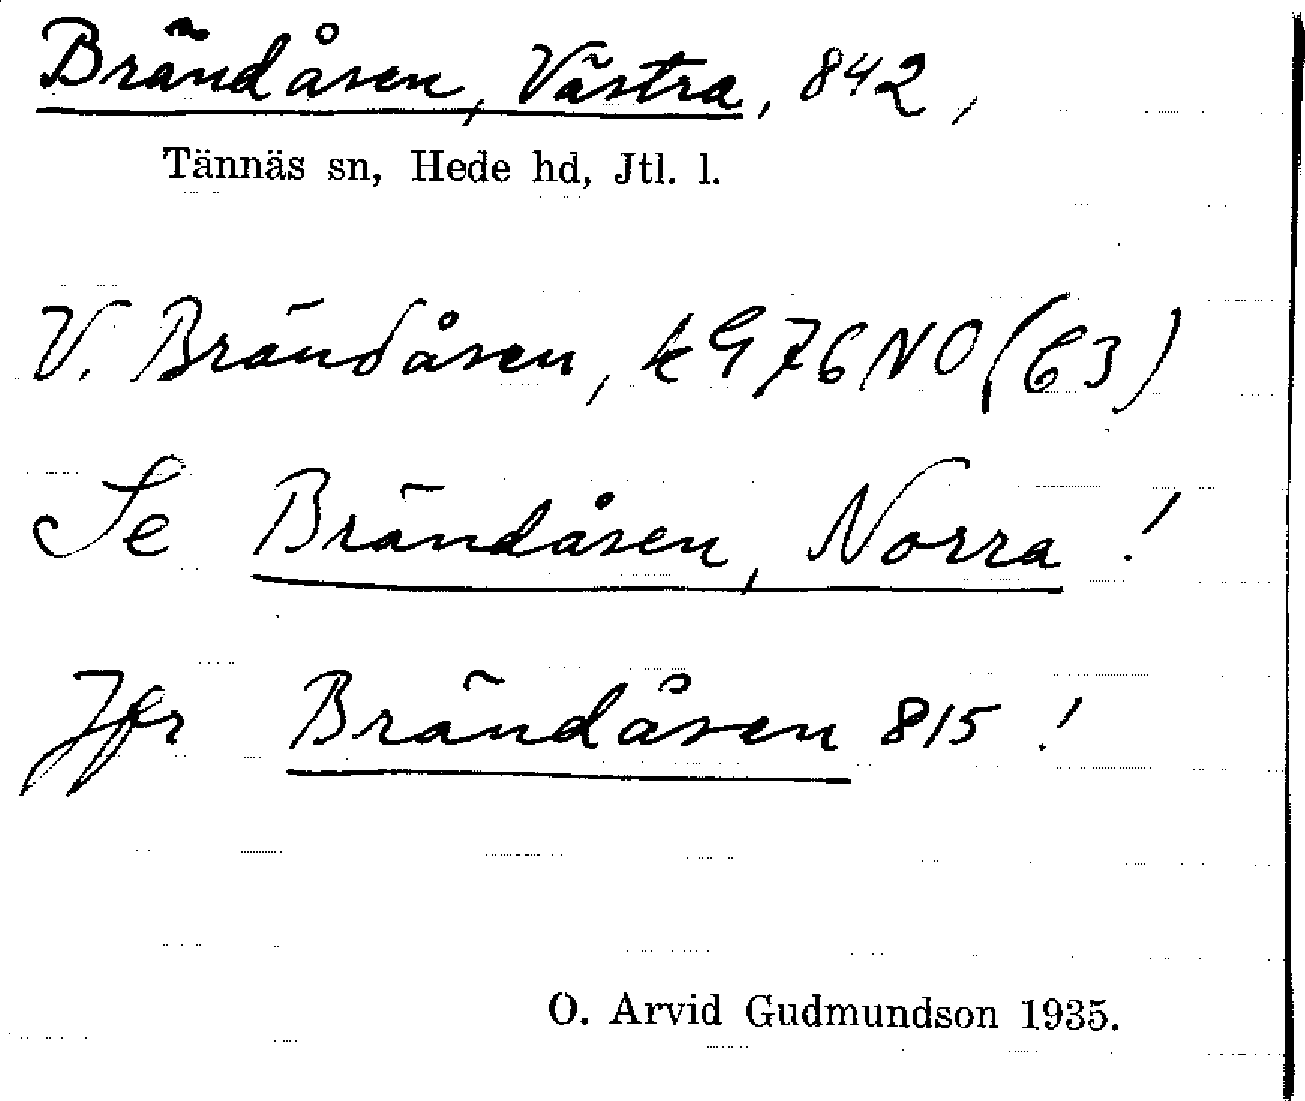 Brändåsen, Västra, 842,
Tännäs sn, Hede hd, Jtl. l.
V. Brändåsen, k G 76 NO (63)
Se Brändåsen, Norra !
Jfr Brändåsen 815 !
O. Arvid Gudmundson 1935.